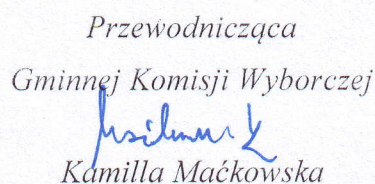 Przewodnicząca
Gminnej Komisji Wyborczej
Kamilla Maćkowska